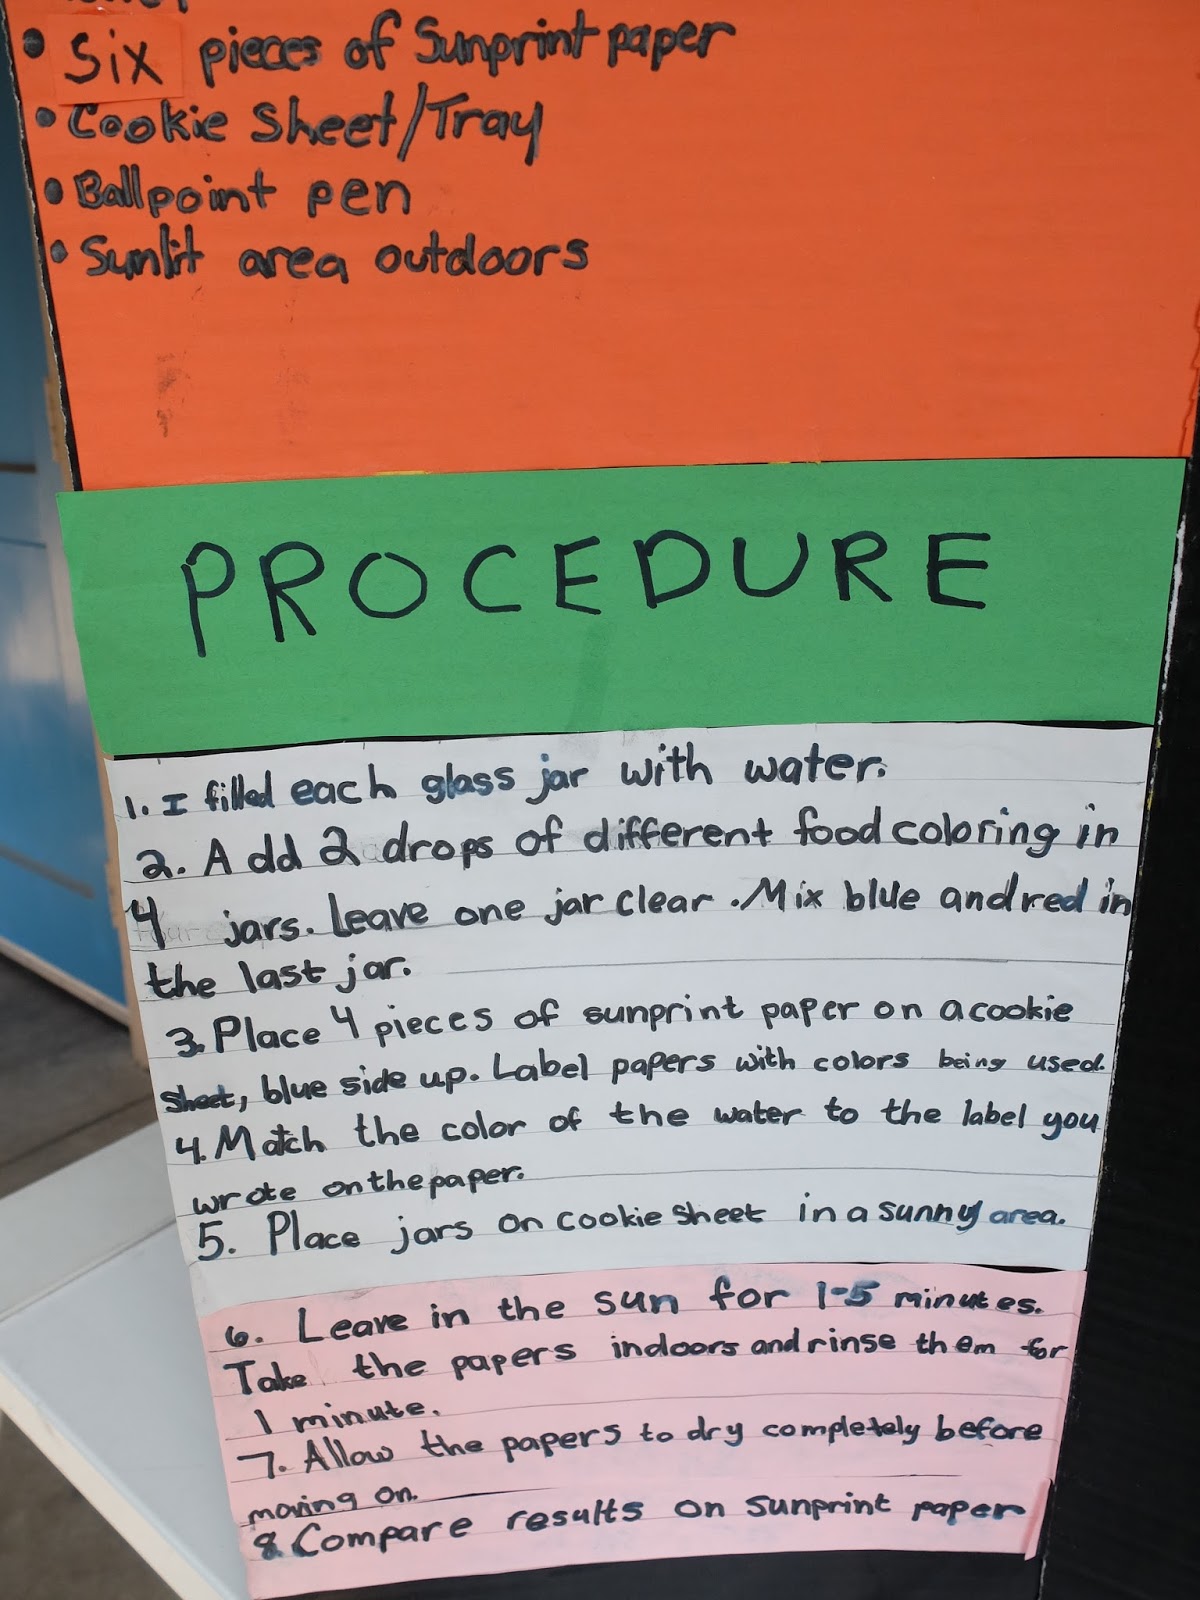 • Six pieces of Sunprint paper
• Cookie Sheet/Tray
• Ballpoint pen
• Sunlit area outdoors
PROCEDURE
1. I filled each glass jar with water.
2. Add 2 drops of different food coloring in
4 jars. Leave one jar clear. Mix blue and red in
the last jar.
3. Place 4 pieces of sunprint paper on a cookie
sheet, blue side up. Label papers with colors being used.
4. Match the color of the water to the label you
wrote on the paper.
5. Place jars on cookie sheet in a sunny area.
6. Leave in the sun for 1-5 minutes.
Take the papers indoors and rinse them for
1 minute.
7. Allow the papers to dry completely before
moving on.
8. Compare results on sunprint paper